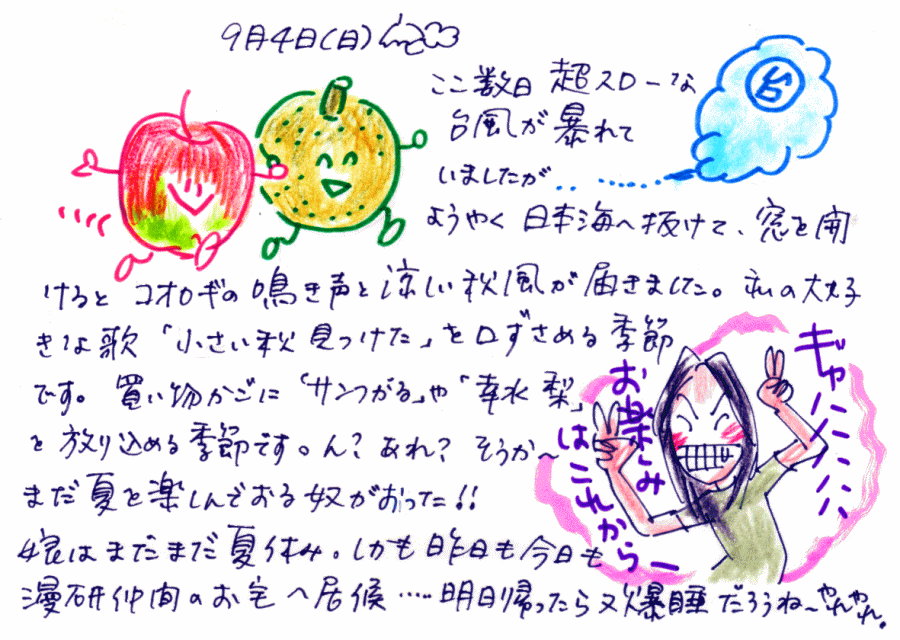 9月4日(日)
ここ数日 超スローな
台風が 暴れて
いましたが‥
ようやく 日本海へ抜けて、窓を開
けると コオロギの鳴き声と涼しい秋風が届きました。私の大好
きな歌「小さい秋見つけた」を口ずさめる季節
です。買い物かごに「サンつがる」や「幸水 梨」
を放り込める季節です。ん?あれ?そうか〜
まだ夏を楽しんでおる奴がおった!!
娘はまだまだ夏休み。しかも昨日も今日も
漫研仲間のお宅へ居候‥‥明日帰ったら又爆睡だろうね〜やれやれ。
台
ギャハハハハ
お楽しみ
はこれからー